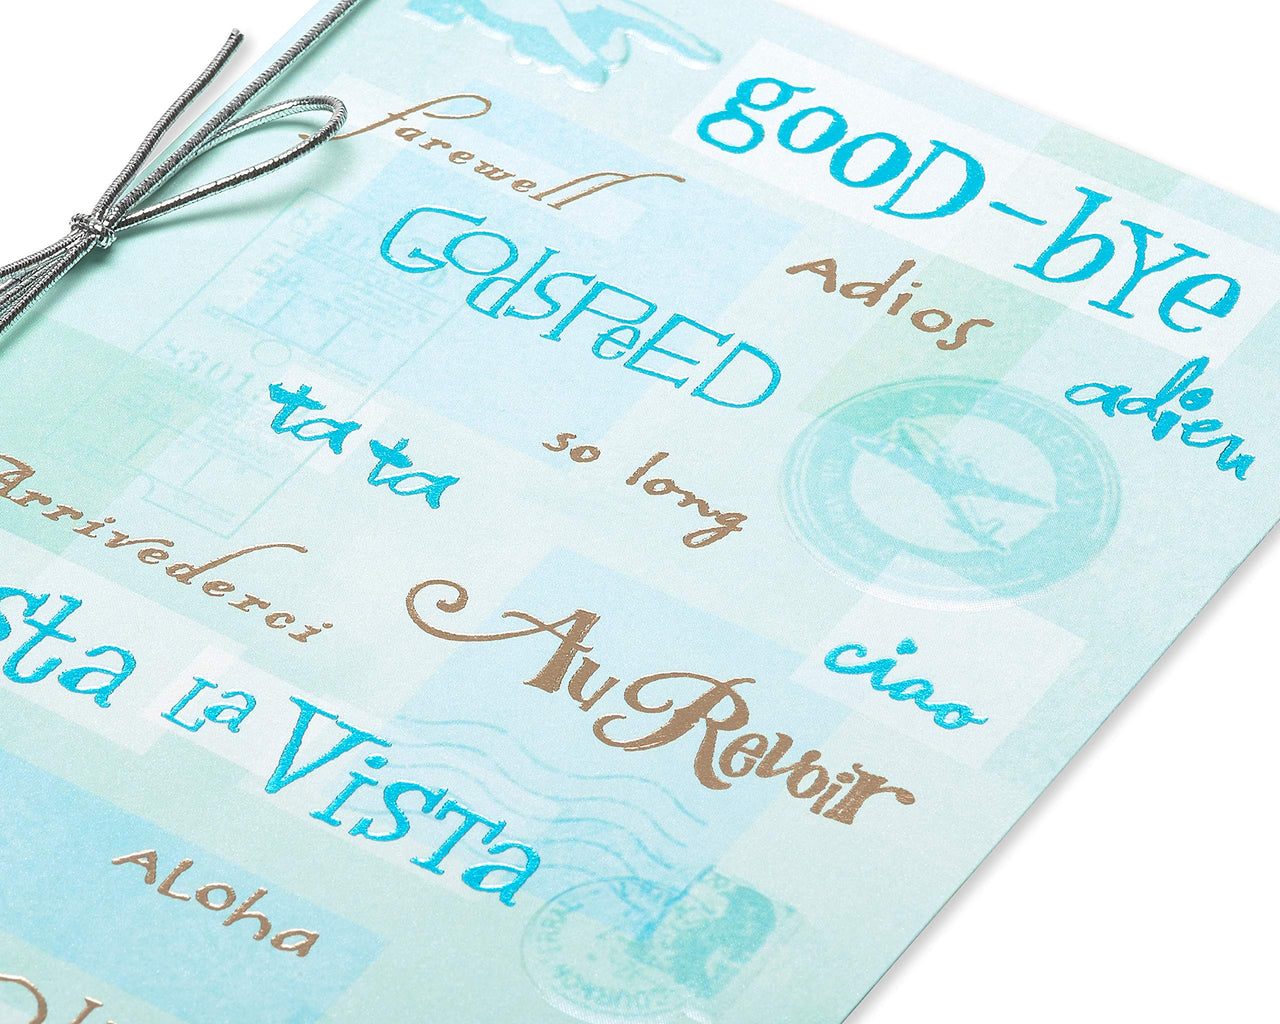 good-bye
farewell
Adios
GodspeED
adieu
ta ta
so long
Arrivederci
Au Revoir
ciao
sta La Vista
ALoha
8301